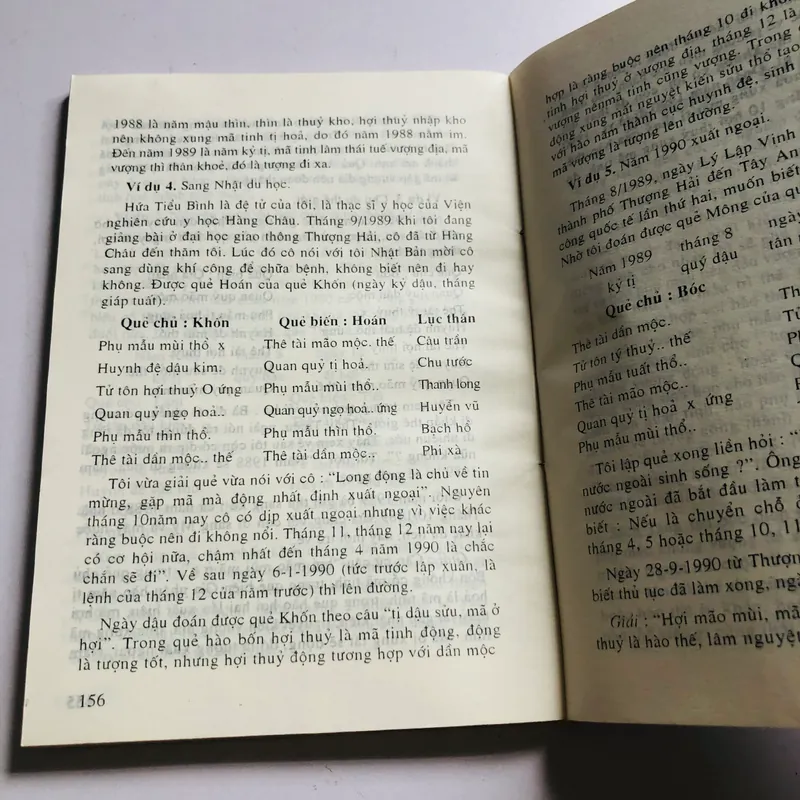 1988 là năm mậu thìn, thìn là thuỷ kho, hợi thuỷ nhập kho
nên không xung mã tinh tị hoả, do đó năm 1988 nằm im.
Đến năm 1989 là năm kỷ tị, mã tinh làm thái tuế vượng địa, mã
vượng thì thân khoẻ, đó là tượng đi xa.
Ví dụ 4. Sang Nhật du học.
Hứa Tiểu Bình là đệ tử của tôi, là thạc sĩ y học của Viện
nghiên cứu y học Hàng Châu. Tháng 9/1989 khi tôi đang
giảng bài ở đại học giao thông Thượng Hải, cô đã từ Hàng
Châu đến thăm tôi. Lúc đó cô nói với tôi Nhật Bản mời cô
sang dùng khí công để chữa bệnh, không biết nên đi hay
không. Được quẻ Hoán của quẻ Khốn (ngày kỷ dậu, tháng
giáp tuất).
Quẻ chủ : Khốn Quẻ biến : Hoán Lục thần
Phụ mẫu mùi thổ x Thê tài mão mộc. thế Câu trần
Huynh đệ dậu kim. Quan quỷ tị hoả. Chu tước
Tử tôn hợi thuỷ O ứng Phụ mẫu mùi thổ.. Thanh long
Quan quỷ ngọ hoả.. Quan quỷ ngọ hoả.. ứng Huyền vũ
Phụ mẫu thìn thổ. Phụ mẫu thìn thổ. Bạch hổ
Thê tài dần mộc.. thế Thê tài dần mộc.. Phi xà
Tôi vừa giải quẻ vừa nói với cô : “Long động là chủ về tin
mừng, gặp mã mà động nhất định xuất ngoại”. Nguyên
tháng 10năm nay cô có dịp xuất ngoại nhưng vì việc khác
ràng buộc nên đi không nổi. Tháng 11, tháng 12 năm nay lại
có cơ hội nữa, chậm nhất đến tháng 4 năm 1990 là chắc
chắn sẽ đi”. Về sau ngày 6-1-1990 (tức trước lập xuân, là
lệnh của tháng 12 của năm trước) thì lên đường.
Ngày dậu đoán được quẻ Khốn theo câu “tị dậu sửu, mã ở
hợi”. Trong quẻ hào bốn hợi thuỷ là mã tinh động, động
là tượng tốt, nhưng hợi thuỷ động tương hợp với dần mộc
156
hợp là ràng buộc nên tháng 10 đi
tinh hợi thuỷ ở vượng địa, tháng 12 là
vượng nênmã tinh cũng vượng. Trong
động xung mất nguyệt kiến sửu thổ tạo
với hào năm thành cục huynh đệ, sinh
mã vượng là tượng lên đường.
Ví dụ 5. Năm 1990 xuất ngoại.
Tháng 8/1989, ngày Lý Lập Vinh
thành phố Thượng Hải đến Tây An
công quốc tế lần thứ hai, muốn biết
Nhờ tôi đoán được quẻ Mông của
Năm 1989 tháng 8 ngày
kỷ tị quý dậu tân
Quẻ chủ : Bóc
Thê tài dần mộc.
Tử tôn tý thuỷ.. thế
Phụ mẫu tuất thổ..
Thê tài mão mộc..
Quan quỷ tị hoả x ứng
Phụ mẫu mùi thổ..
Tôi lập quẻ xong liền hỏi : “
nước ngoài sinh sống ?”. Ông
nước ngoài đã bắt đầu làm
biết : Nếu là chuyển chỗ
tháng 4, 5 hoặc tháng 10, 11
Ngày 28-9-1990 từ
biết thủ tục đã làm xong,
Giải : “Hợi mão mùi, mã
thuỷ là hào thế, lâm